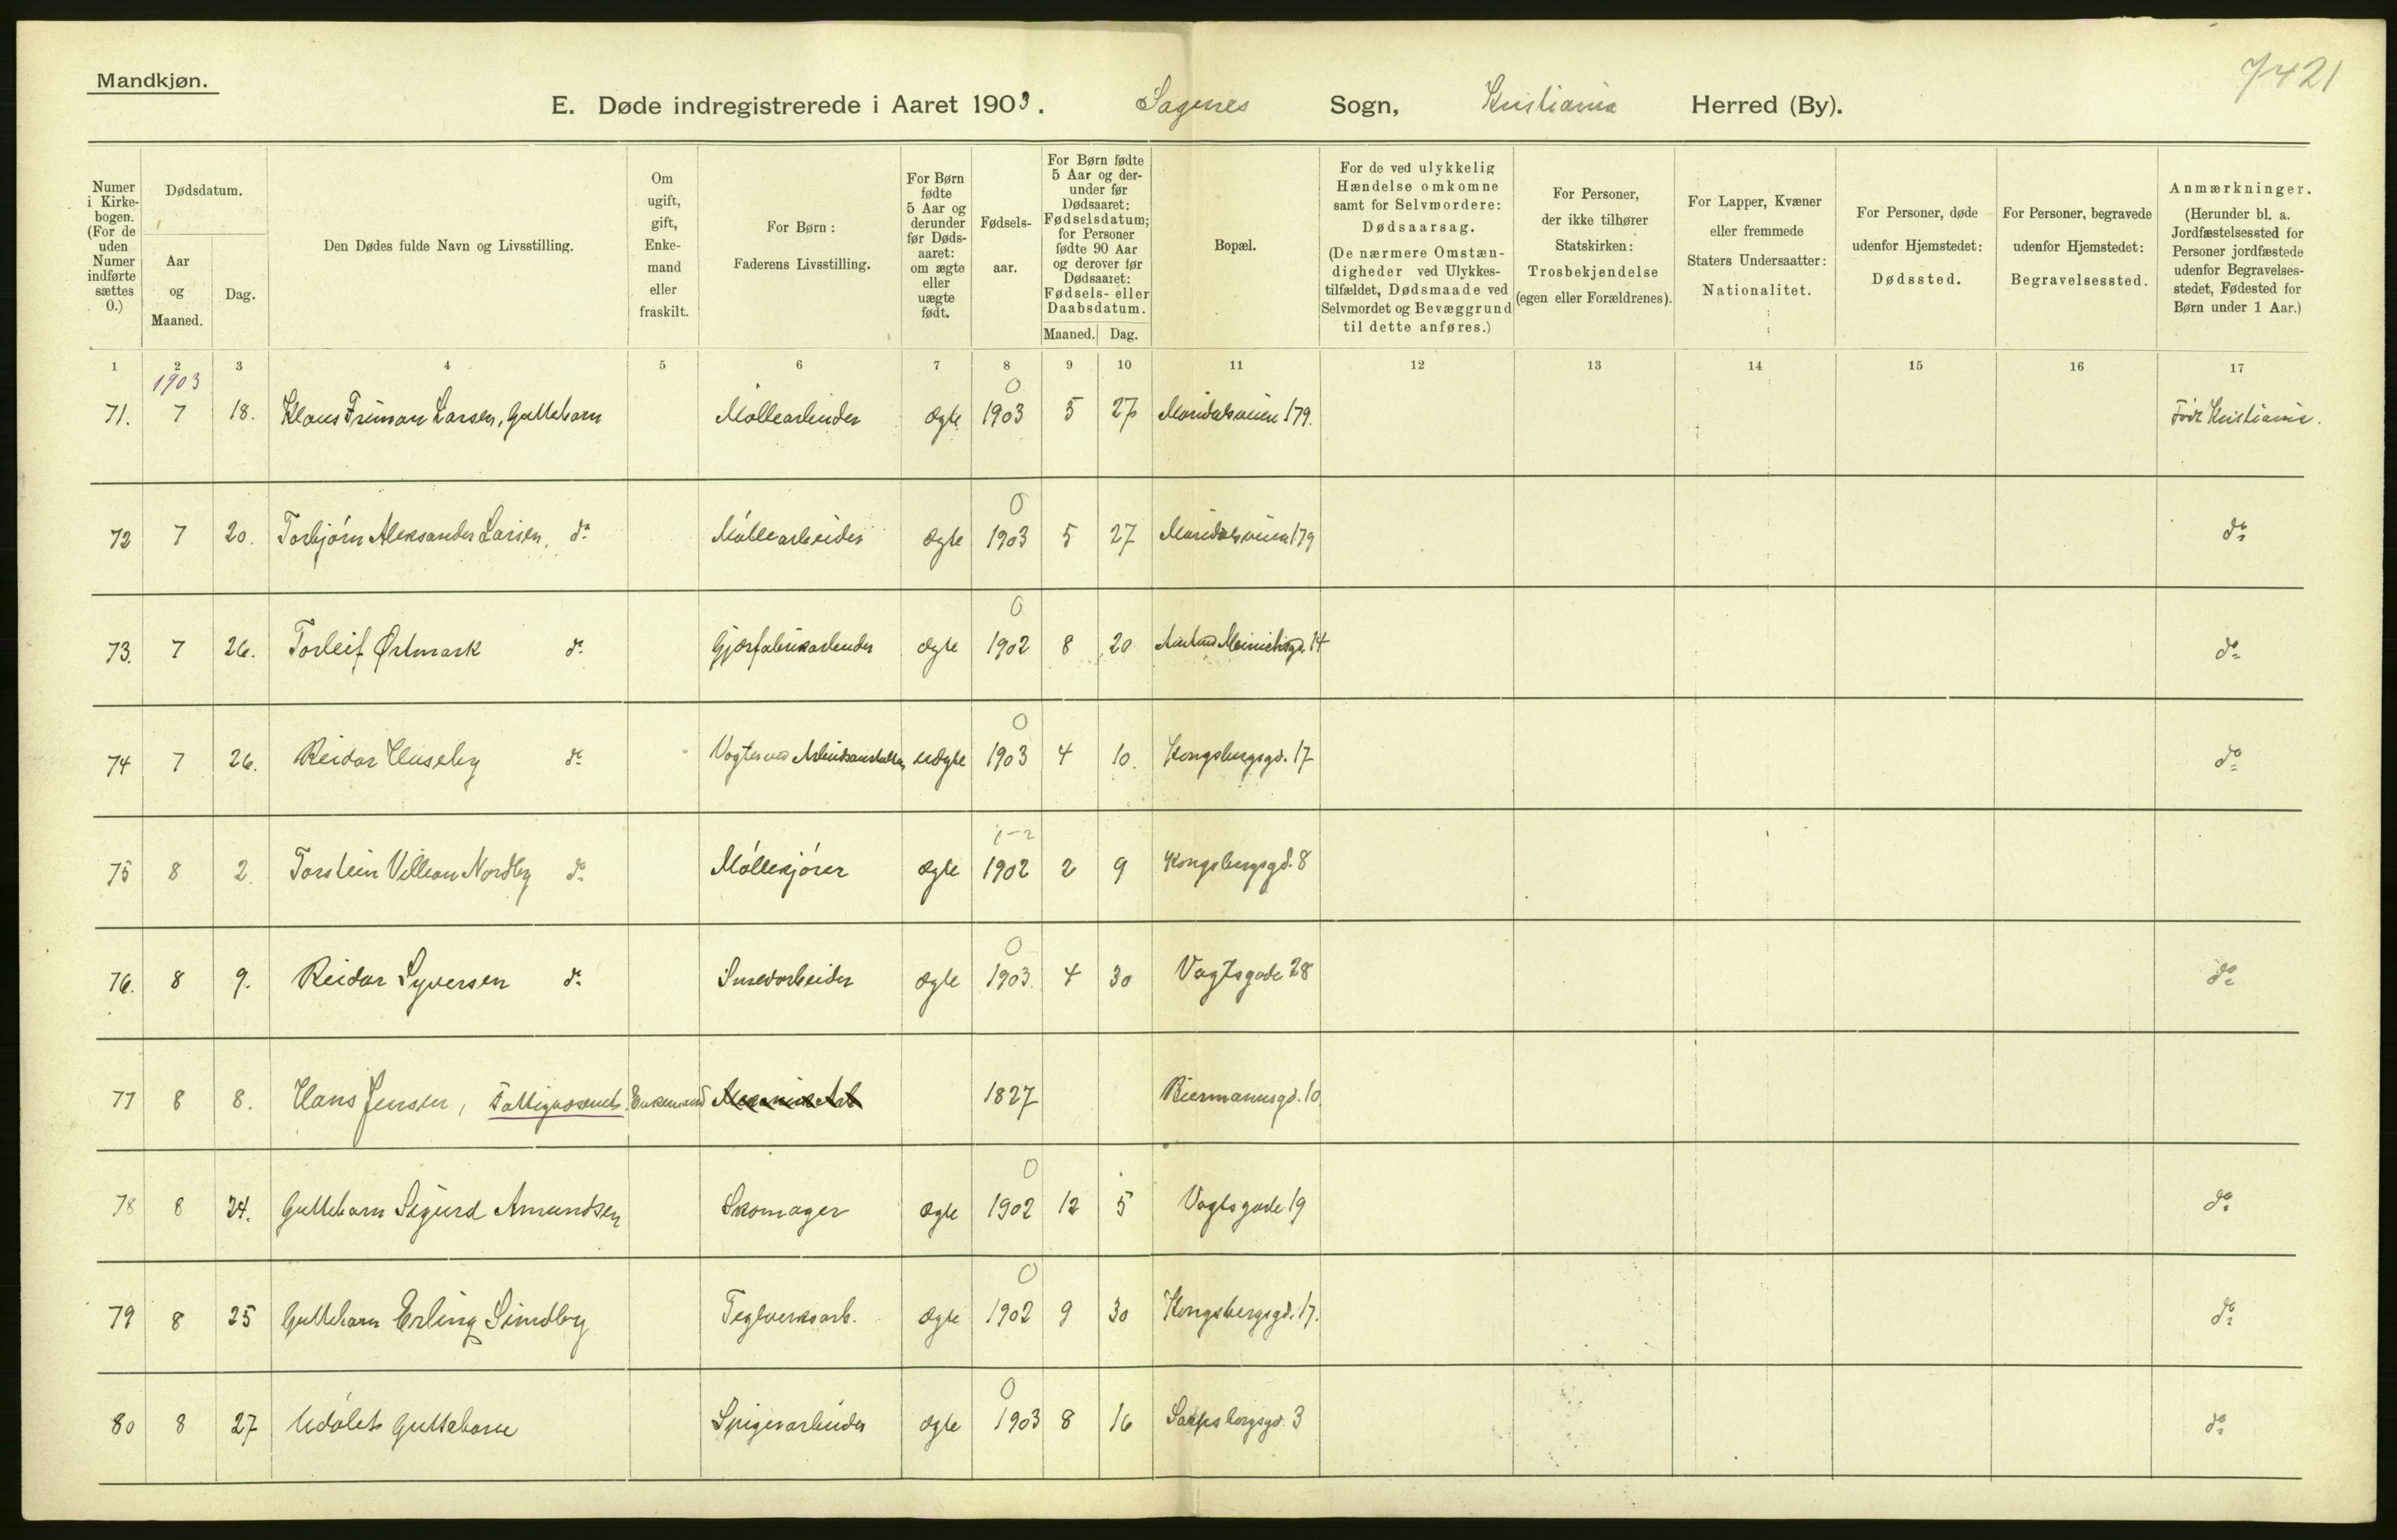 Mandkjøn.
7421
E. Døde indregistrerede i Aaret 1903. Sagenes Sogn, Kristiania Herred (By).
Numer i Kirke-bogen. (For de uden Numer indførte sættes 0.)
Dødsdatum.
Aar og Maaned.
Dag.
Den Dødes fulde Navn og Livsstilling.
Om ugift, gift, Enke-mand eller fraskilt.
For Børn: Faderens Livsstilling.
For Børn fødte 5 Aar og derunder før Døds-aaret: om ægte eller uægte født.
Fødsels-aar.
For Børn fødte 5 Aar og der-under før Dødsaaret: Fødselsdatum; for Personer fødte 90 Aar og derover før Dødsaaret: Fødsels- eller Daabsdatum.
Maaned. Dag.
Bopæl.
For de ved ulykkelig Hændelse omkomne samt for Selvmordere: Dødsaarsag. (De nærmere Omstæn-digheder ved Ulykkes-tilfældet, Dødsmaade ved Selvmordet og Bevæggrund til dette anføres.)
For Personer, der ikke tilhører Statskirken: Trosbekjendelse (egen eller Forældrenes).
For Lapper, Kvæner eller fremmede Staters Undersaatter: Nationalitet.
For Personer, døde udenfor Hjemstedet: Dødssted.
For Personer, begravede udenfor Hjemstedet: Begravelsessted.
Anmærkninger. (Herunder bl. a. Jordfæstelsessted for Personer jordfæstede udenfor Begravelses-stedet, Fødested for Børn under 1 Aar.)
1 2 3 4 5 6 7 8 9 10 11 12 13 14 15 16 17
1903 0
71. 7 18. Klaus Friman Larsen, Guttebarn Møllearbeider Ægte 1903 5 27 Maridalsveien 179. Født Kristiania.
0
72 7 20. Torbjørn Aleksander Larsen, do Møllearbeider Ægte 1903 5 27 Maridalsveien 179 do
0
73. 7 26. Torleif Østmark do Gjærfabrikarbeider Ægte 1902 8 20 14 do
0
74 7 26. Reidar Huseby do Vogter ved Arbeidsanstalten uægte 1903 4 10. Kongsbergsgd. 17 do
1-2
75 8 2. Torstein Villian Nordby do Møllekjører Ægte 1902 2 9 Kongsbergsgd. 8
0
76. 8 9. Reidar Syversen do Smedarbeider Ægte 1903. 4 30 Vogtsgade 28 do
77 8 8. Hans Jensen, Fattigvæsenet. Enkemand 1827 Biermannsgd. 10.
0
78 8 24. Guttebarn Sigurd Amundsen Skomager Ægte 1902 12 5 Vogtsgade 19 do
0
79 8 25 Guttebarn Erling Sindby Teglverksarb. Ægte 1902 9 30 Kongsbergsgd. 17. do
0
80 8 27 Udøbt Guttebarn Spigerarbeider Ægte 1903 8 16 Sarpsborgsgd. 3 do